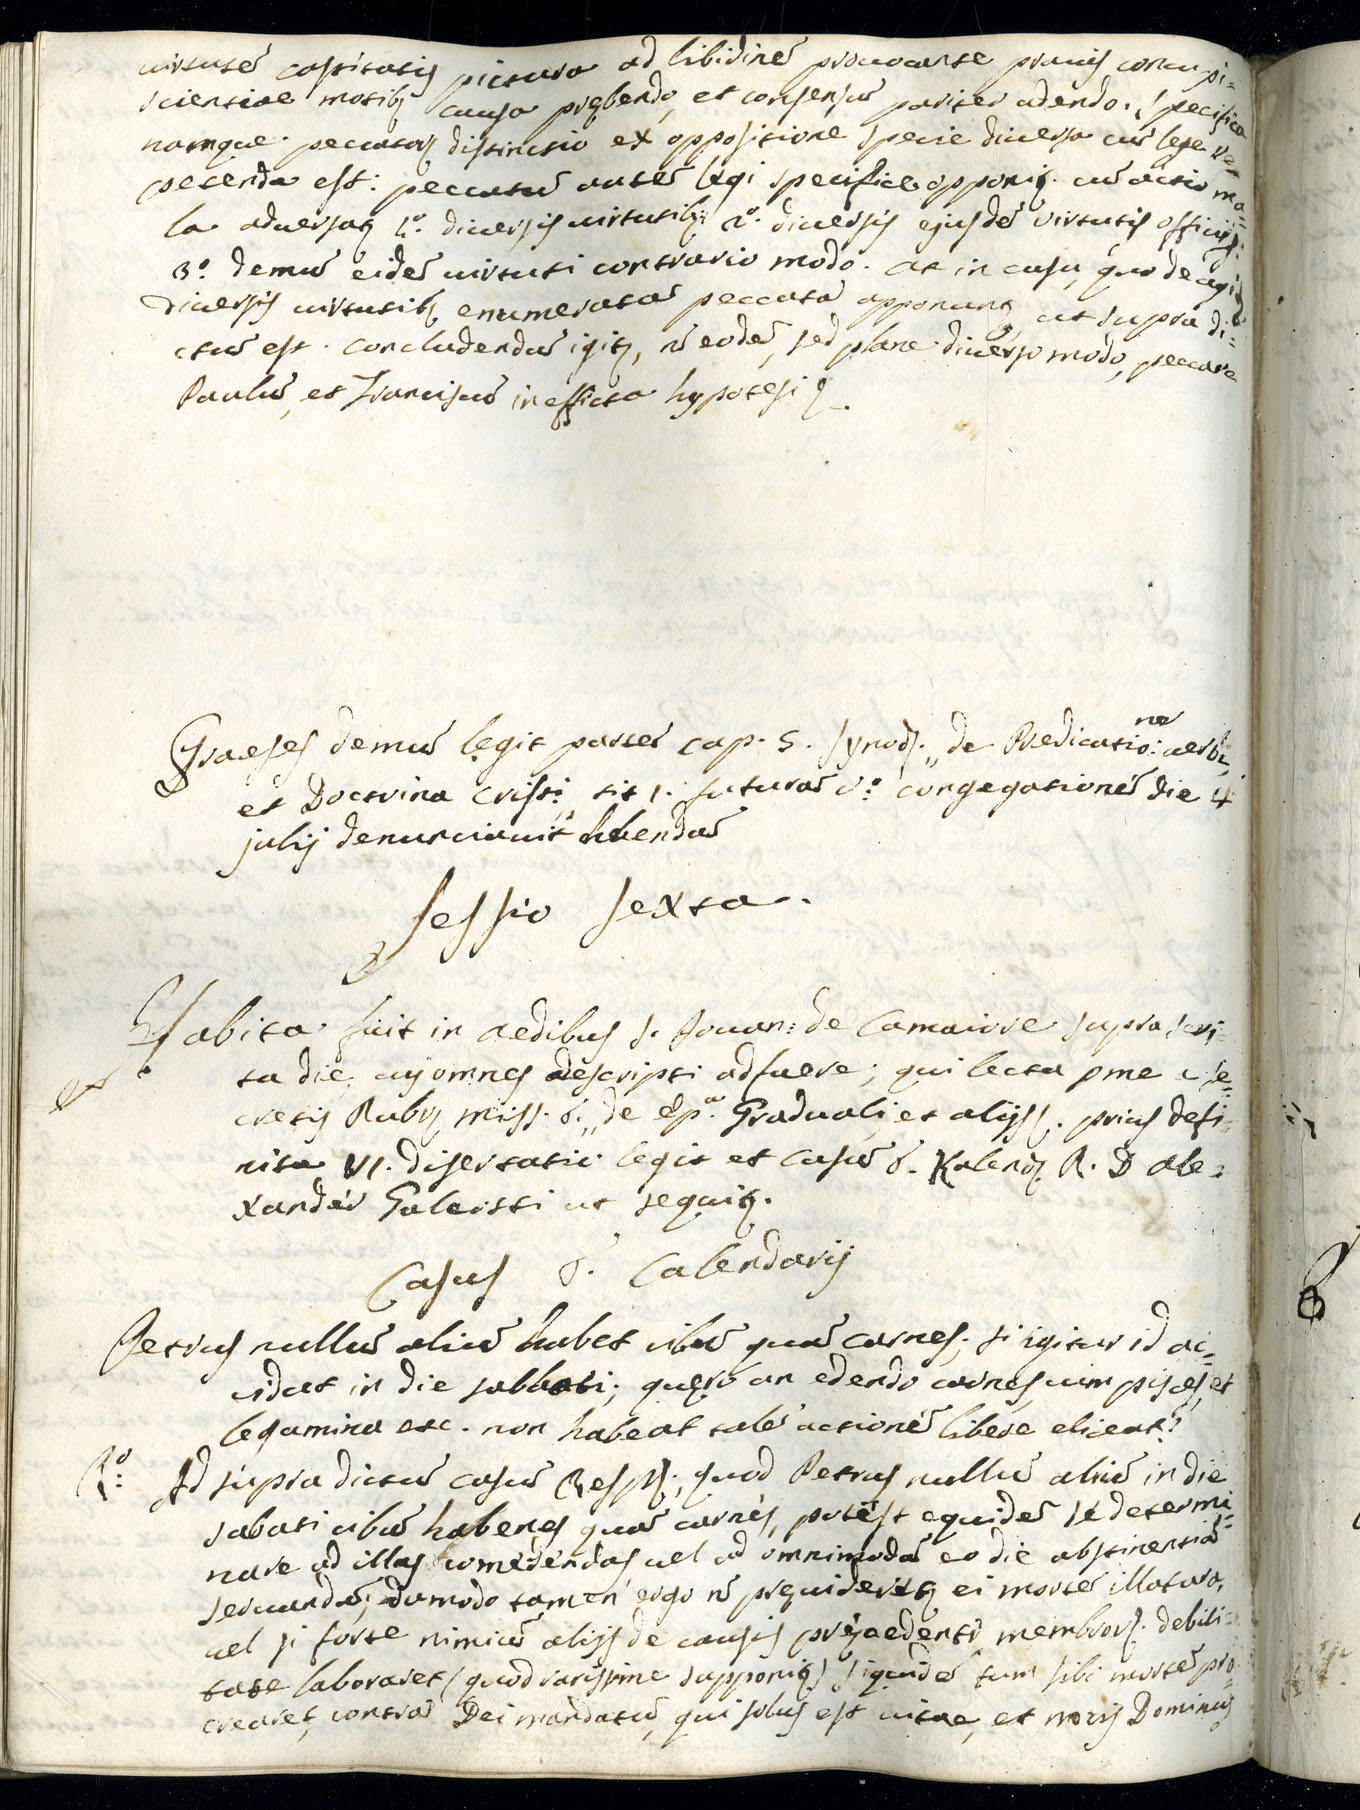 virtutē castitatis pictura ad libidinē provocante pravis concupi=
scientiae motibꝫ causa prębendo, et consensū pariter adendo. specifica
namque peccatorꝫ distinctio ex oppositione specie diversa cū lege re=
petenda est: peccatū autē legi specifice opponitꝫ. cū actio ma=
la adversatꝫ 1.º diversis virtutibꝫ 2º. diversis ejusdē virtutis officijs.
3.º demū eidē virtuti contrario modo. at in casu, quo de agitꝫ
diversis virtutibꝫ enumerata peccata opponunꝫ, ut supra di=
ctum est. concludendū igitꝫ, nō eodē, sed plane diverso modo, peccare
Paulū, et Franciscū in efficta hypotesi
Praeses demū legit partē cap. 5. synodꝫ. „ de Predicatio:ne verbi,
et Doctrina Cristi, sit 1. futurā vº: congegationē die 4
julij denunciavit hbendā
Sessio sexta.
Habita fuit in aedibus s. Iouan: de Camaiore supra scri=
ta die, cuj omnes adescripti adfuere; qui lecta pme a se=
cretis Rubꝫ miss. 6. „ de Epª. Graduali, et alijs. prius defi=
nita VI. disertatio legit et casū 6. Kalendꝫ R. D Ale=
xandēr Galeotti ut sequitꝫ.
Casus 6. Calendarij
Petrus nullū aliū habet cibū quā carnes; si igitur id ac=
cidat in die sabbati; quęro an edendo carnes, cum pisces, et
legamina etc. non habeat talē actionē libere eliceat?
Rº: Ad supra dictū casū Respꝫ., quod Petrus nullū aliū in die
sabati cibū habens quā carnes, potest equidē se determi=
nare ad illas comedendas, vel ad omnimodā eo die abstinentiā
servandā, dumodo tamen ergo nō pręvideretꝫ ei mortē illatura,
vel si forte nimiū alijs de causis pręcedenti membrorꝫ. debili=
tate laboraret (quod rarissime supponitꝫ) siquidē tum sibi mortē pro=
crearet, contra Dei mandatū, qui solus est vitae, et moris Dominus